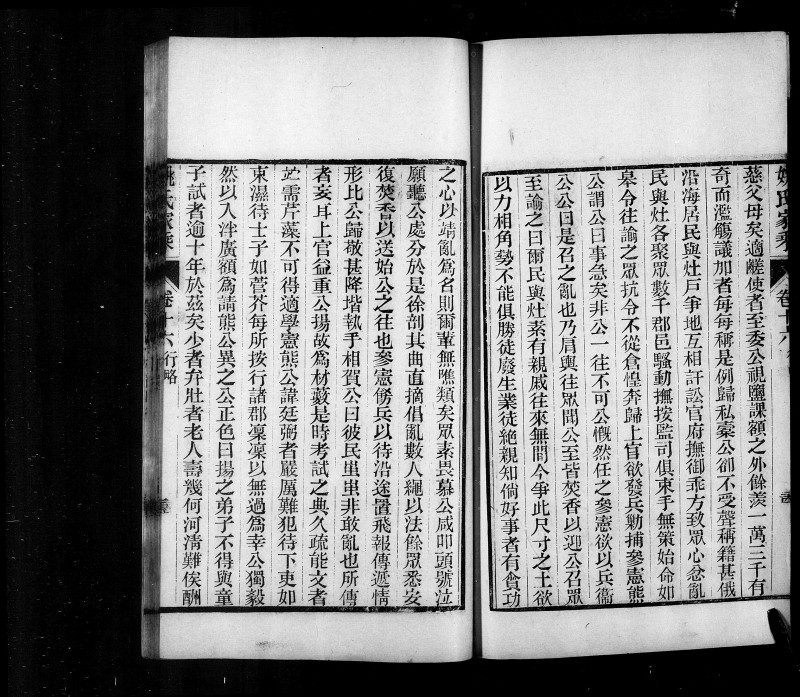 姚氏家乘 卷十六
慈父母矣適鹺使者至委公視鹽課額之外餘羨一萬三千有
奇而濫觴議加者每每稱是例歸私橐公卻不受聲稱籍甚俄
沿海居民與灶戶爭地互相訐訟官府撫御乖方致眾心忿亂
民與灶各聚眾數千郡邑騷動撫按監司俱束手無策始命如
皋令往諭之眾抗令不從倉惶奔歸上官欲發兵勦捕參憲熊
公謂公曰事急矣非公一往不可公慨然任之參憲欲以兵衛
公公曰是召之亂也乃肩輿往眾聞公至皆焚香以迎公召眾
至諭之曰爾民與灶素有親戚往來無間今爭此尺寸之土欲
以力相角勢不能俱勝徒廢生業徒絕親知倘好事者有貪功
之心以靖亂為名則爾輩無噍類矣眾素畏慕公咸叩頭號泣
願聽公處分於是徐剖其曲直摘倡亂數人繩以法餘眾悉安
復焚香以送始公之往也參憲勒兵以待沿途置飛報傳遞情
形比公歸敬甚降堦執手相賀公曰彼民蚩蚩非敢亂也所傳
者妄耳上官益重公揚故為材藪是時考試之典久疏能文者
需芹藻不可得適學憲熊公諱廷弼者嚴厲難犯待下吏如
束濕待士子如菅芥每所按行諸郡凜凜以無過為幸公獨毅
然以入泮廣額為請熊公異之公正色曰揚之弟子不得與童
子試者逾十年於茲矣少者弁壯者老人壽幾何河清難俟酬
姚氏家乘 卷十六 行略